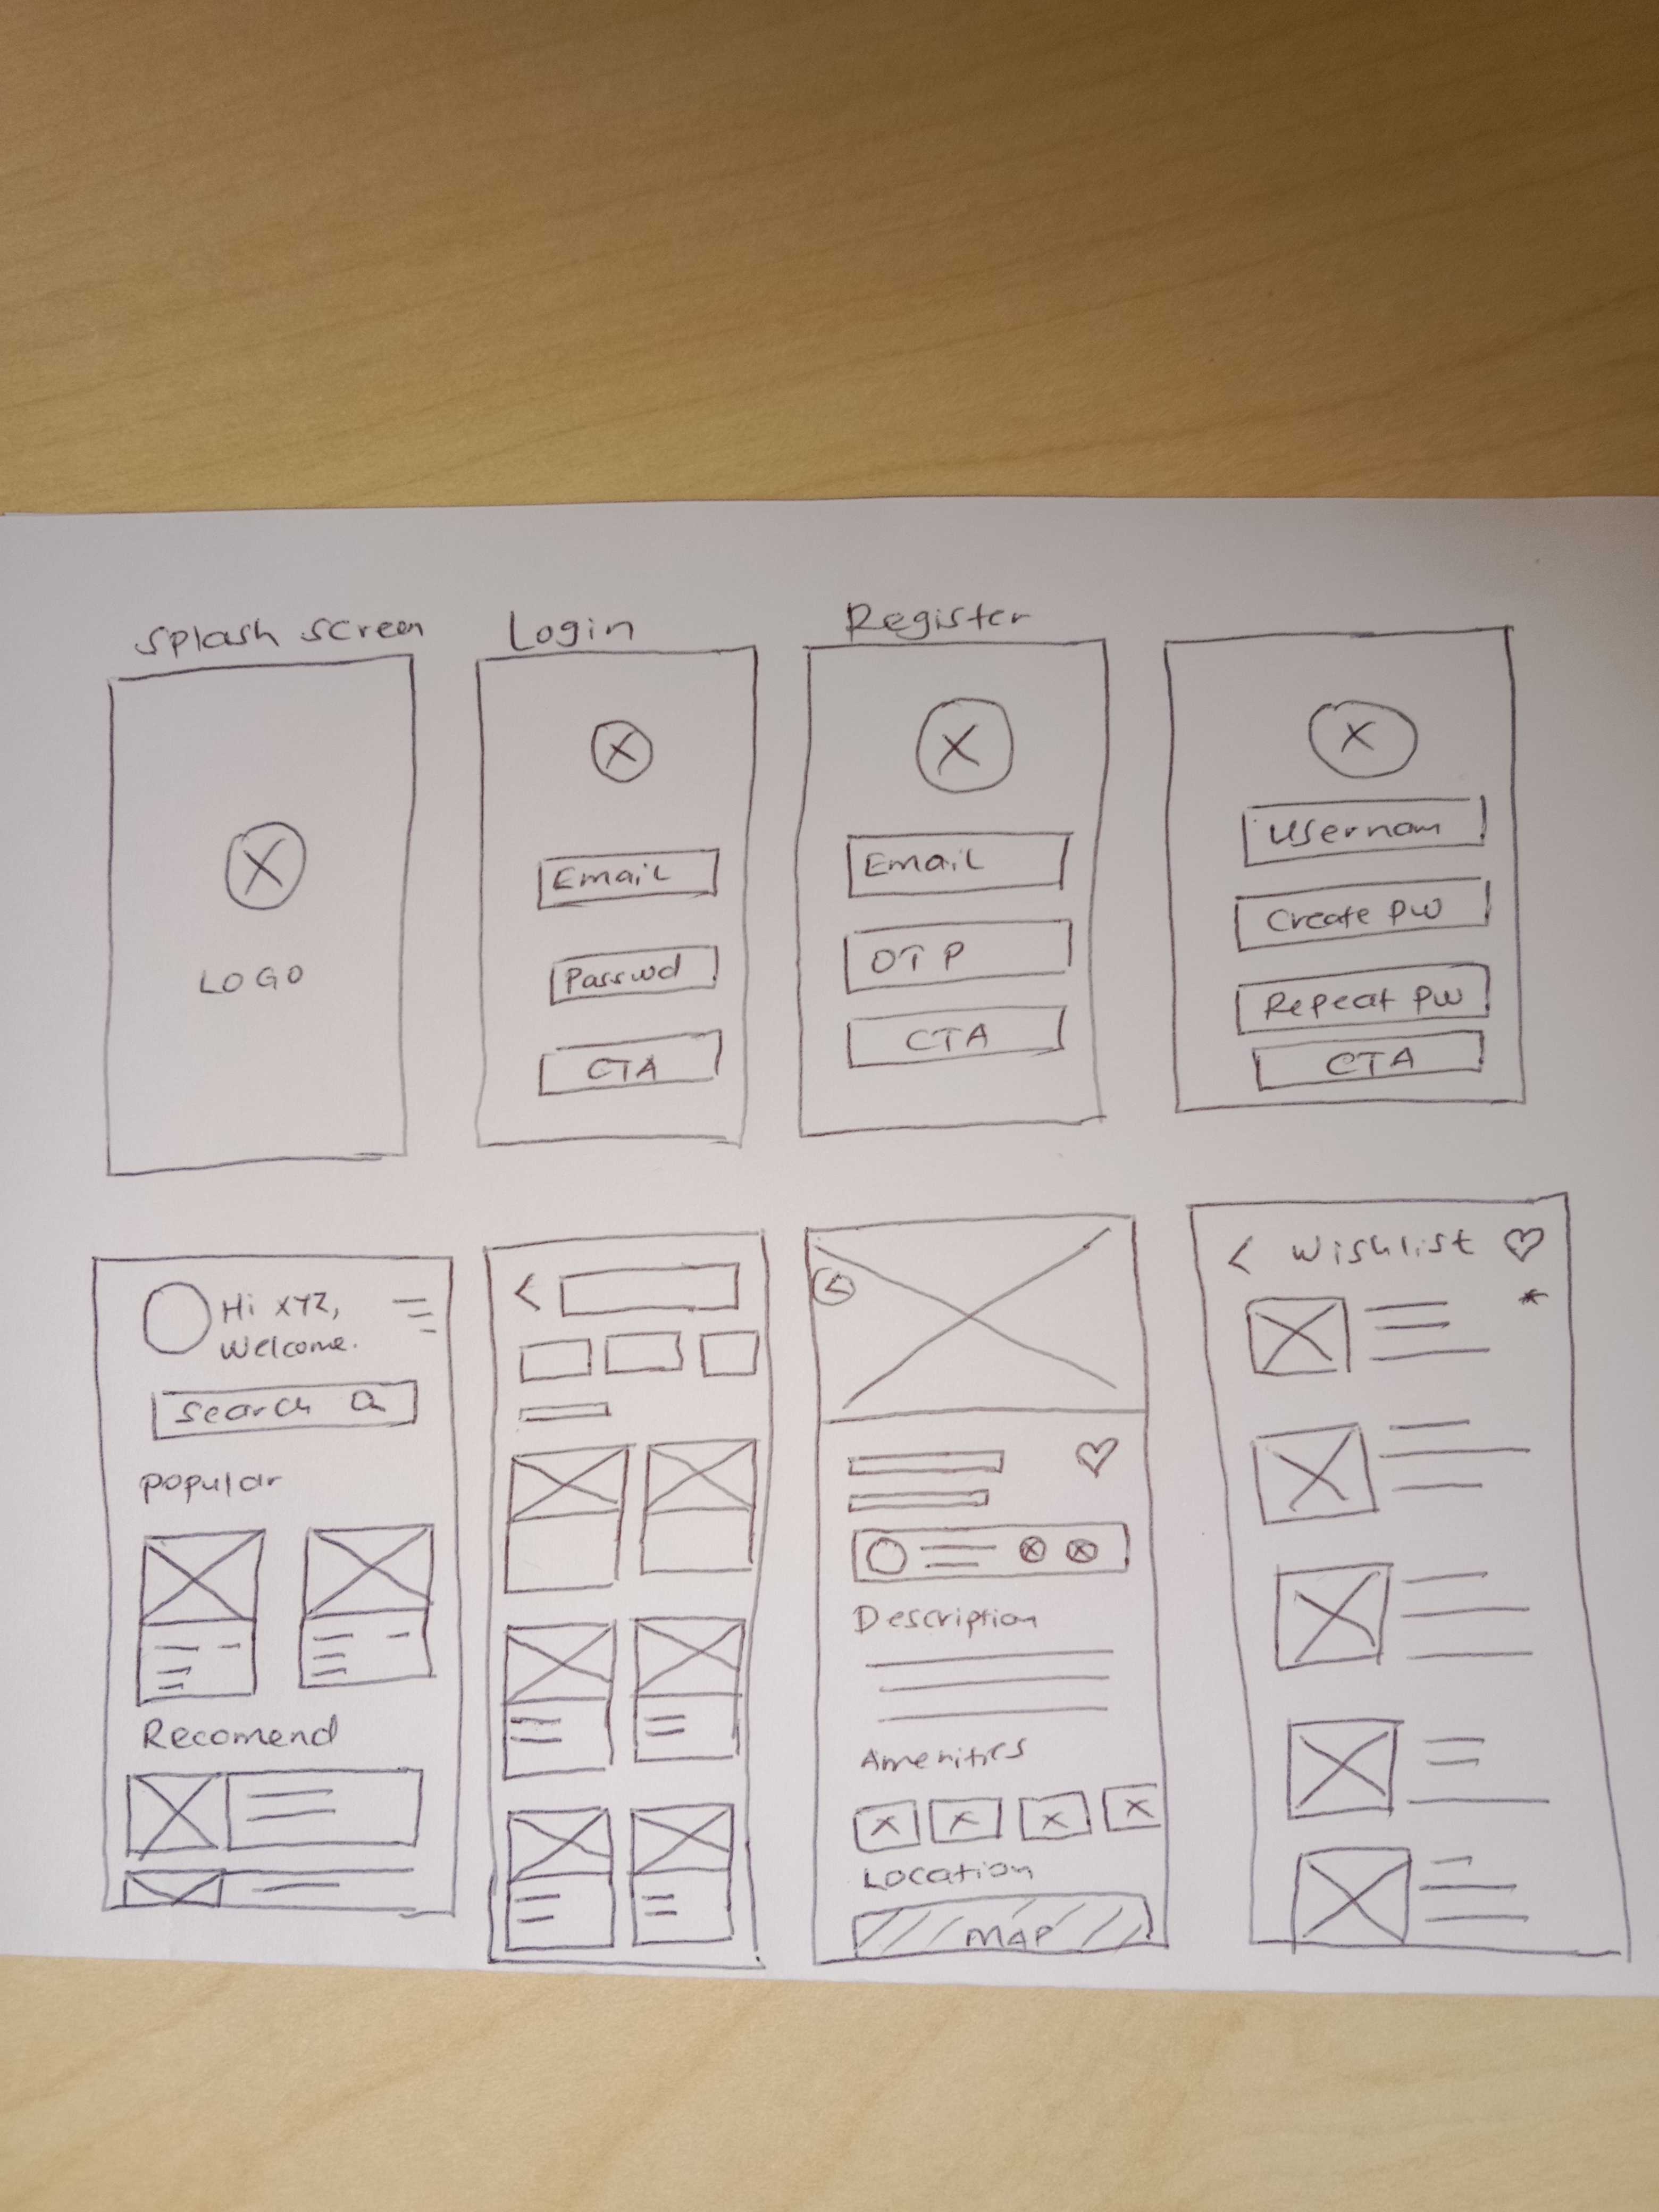 Splash screen
LOGO
Login
Email
Passwd
CTA
Register
Email
OTP
CTA
Usernam
Create PW
Repeat PW
CTA
Hi XYZ,
Welcome.
Search
Popular
Recomend
Description
Amenities
Location
MAP
< Wishlist
*